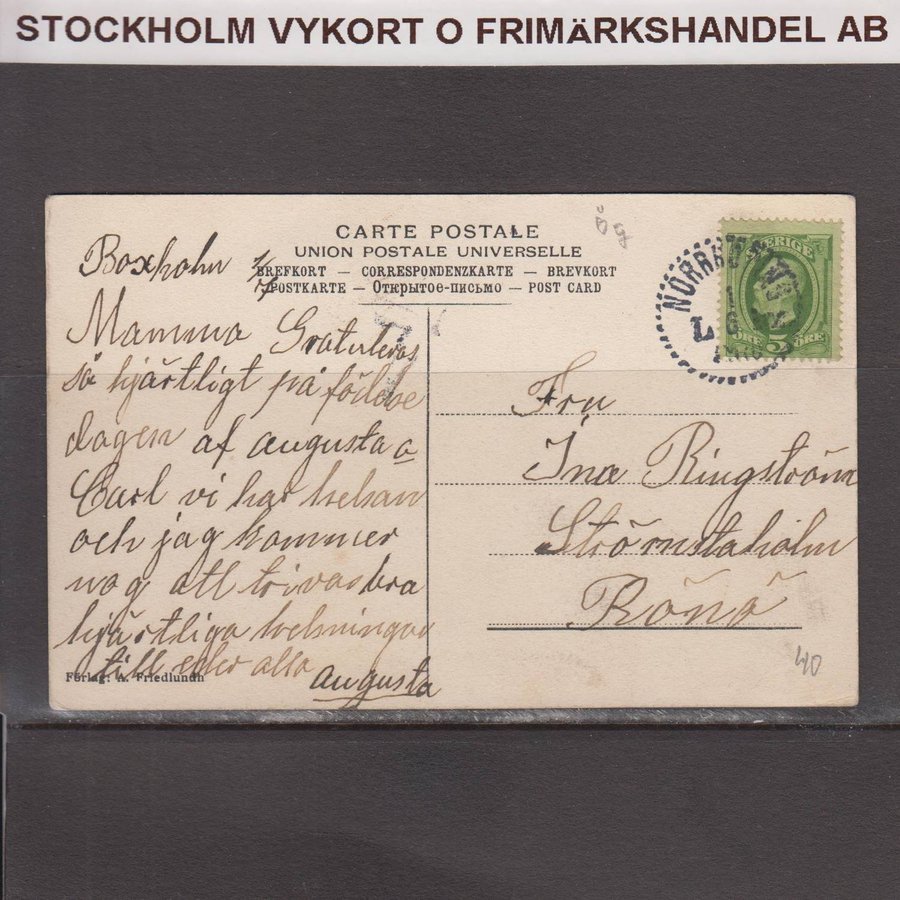 STOCKHOLM VYKORT O FRIMÄRKSHANDEL AB
CARTE POSTALE
UNION POSTALE UNIVERSELLE
BREFKORT — CORRESPONDENZKARTE — BREVKORT
POSTKARTE — Открытое-письмо — POST CARD
Boxholm
Mamma Gratuleras
så hjärtligt på födelse
dagen af augusta o
Carl vi har helsan
och jag kommer
nog att trivas bra
hjärtliga helsningar
till eder alla
augusta
Förlag: A. Friedlundh
SVERIGE
ÖRE 5 ÖRE
L
Fru
Ina Ringström
Strömstaholm
Rönö
40